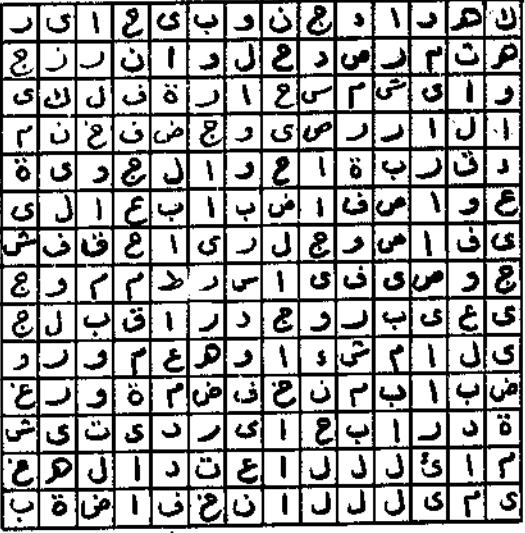 ك ه د ا د ج ن و ب ى ح ا ى ر
ه ت م ر ص د ح ل و ا ن ر ز ج
و ا ى ش م س ح ا ر ة ف ل ك ى
ا ل ا ر ر ص ى و ج ض ف خ ن م
د ق ر ب ة ا ح و ا ل ج و ى ة
ع و ا ص ف ا ض ب ا ب ع ا ل ى
ى ف ا ص و ج ل ر ى ا ح ق ف ش
ج و ص ى ف ى ا س ر ط م م و ج
ى ع ى ب ر و ج د ر ا ق ب ل ج
ى ل ا م ش ء ا و ه ع م و ر د
ض ب ا ب م ن خ ف ض م ة و ر غ
ة د ر ا ب ح ا ى ر د ى ت ى ش
م ا ئ ل ل ل ا ع ت د ا ل ه خ
ى م ى ل ل ل ا ن خ ف ا ض ة ب